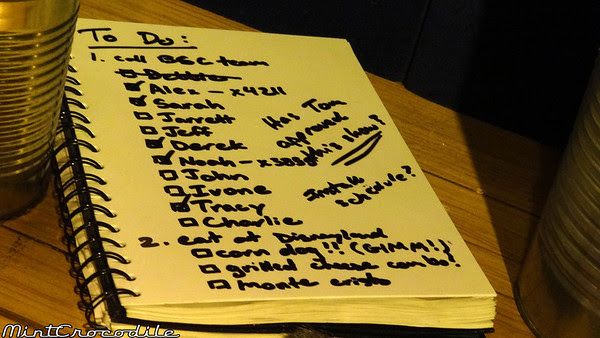 To Do:
1. call BGC team
Debbie
Alex - x4211
Sarah
Jarrett
Jeff
Derek
Noah - x3030
John
Ivone
Tracy
Charlie
Has Tom
approved
this show?
Install
schedule?
2. eat at Disneyland
corn dog!! (GIMM!)
grilled cheese combo!
monte cristo
MintCrocodile